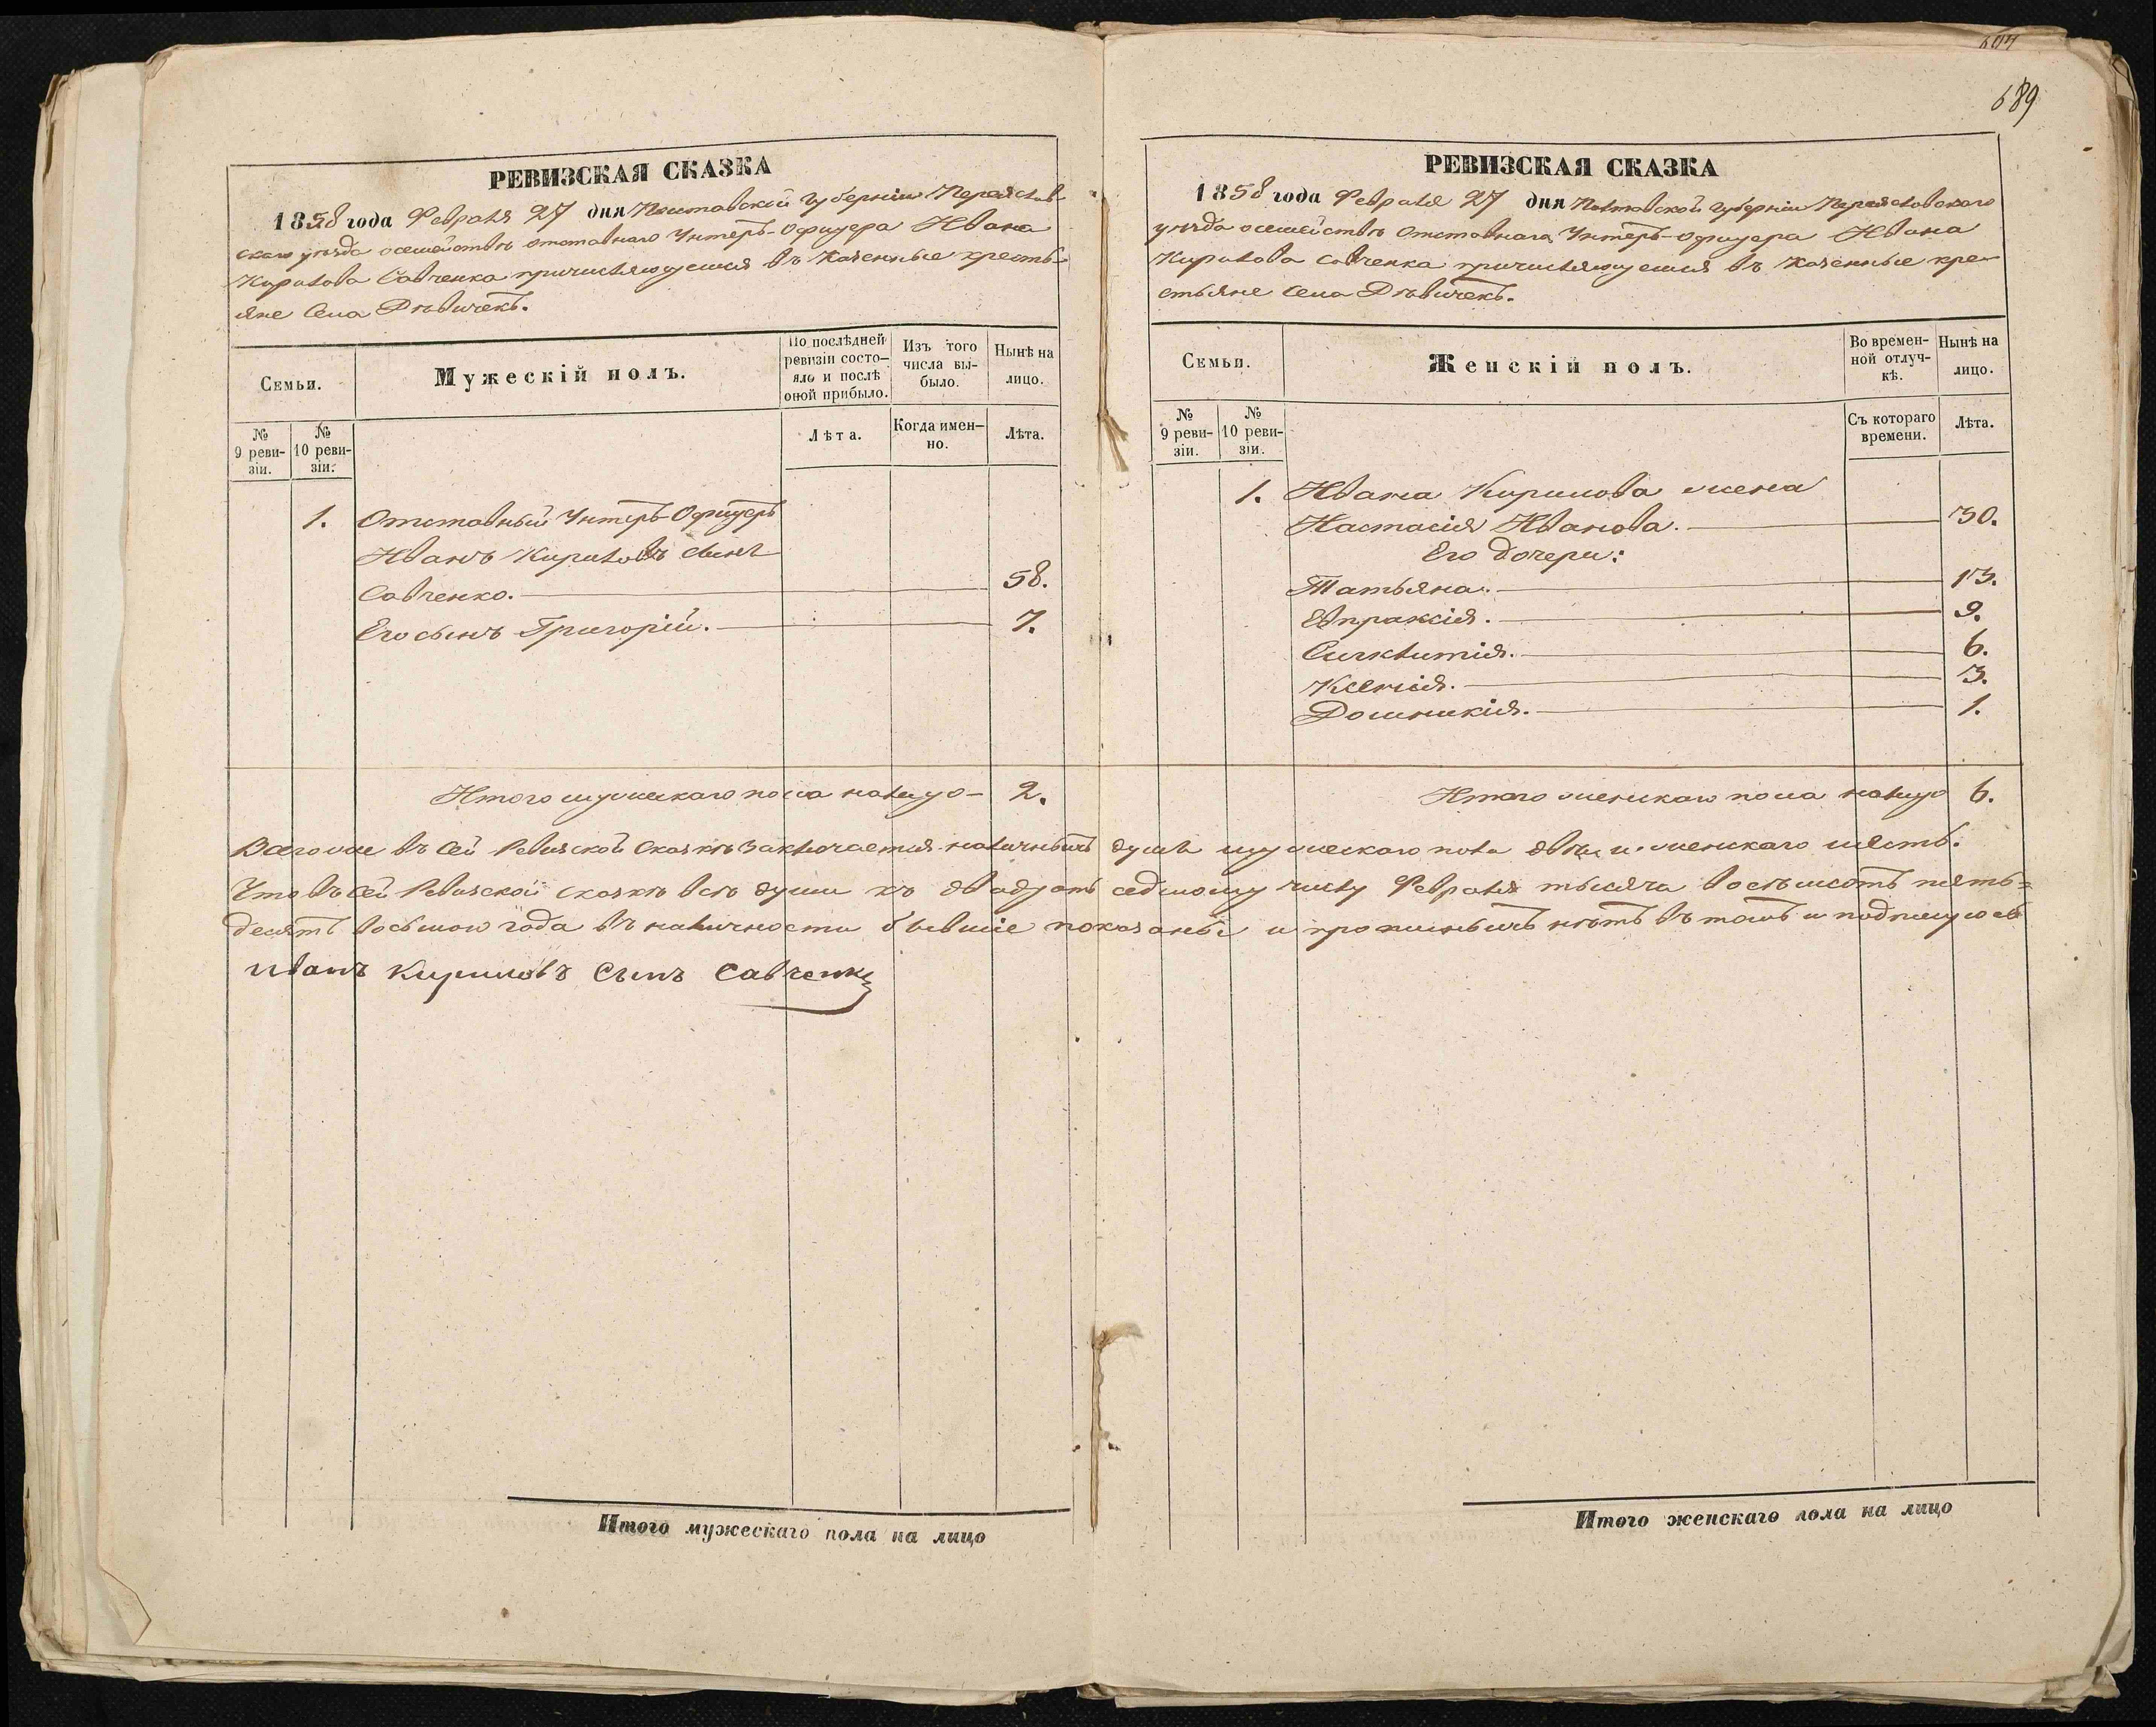 604
689
РЕВИЗСКАЯ СКАЗКА
1858 года Февраля 27 дня Полтавской Губерніи Переяслав-
скаго уѣзда о семействѣ отставнаго Унтеръ-Офицера Ивана
Кирилова Савченка причисляющемся въ казенные кресть-
яне Села Дѣвичекъ.
Семьи.
Мужескій полъ.
По послѣдней ревизіи состо-
яло и послѣ оной прибыло.
Изъ того числа вы-
было.
Нынѣ на лицо.
№ 9 реви-
зіи.
№ 10 реви-
зіи.
Лѣта.
Когда имен-
но.
Лѣта.
1. Отставный Унтеръ-Офицеръ
Иванъ Кириловъ сынъ
Савченко. 58.
Его сынъ Григорій. 7.
Итого мужескаго пола налицо - 2.
РЕВИЗСКАЯ СКАЗКА
1858 года Февраля 27 дня Полтавской Губерніи Переяславскаго
уѣзда о семействѣ Отставнаго Унтеръ-Офицера Ивана
Кирилова Савченка причисляющемся въ казенные кре-
стьяне Села Дѣвичекъ.
Семьи.
Женскій полъ.
Во времен-
ной отлуч-
кѣ.
Нынѣ на лицо.
№ 9 реви-
зіи.
№ 10 реви-
зіи.
Съ котораго времени.
Лѣта.
1. Ивана Кирилова жена
Настасія Иванова. 30.
Его дочери:
Татьяна. 13.
Евпраксія. 9.
Синклитія. 6.
Ксенія. 3.
Домникія. 1.
Итого женскаго пола налицо 6.
Всего же въ сей Ревизской Сказкѣ заключается наличныхъ душъ мужескаго пола двѣ и женскаго шесть.
Что въ сей Ревизской сказкѣ всѣ души къ двадцать седмому числу Февраля тысяча восемьсотъ пять=
десятъ восьмого года въ наличности бывшіе показаны и прописныхъ нѣтъ въ томъ и подпишуюсь
иванъ Кириловъ Сынъ Савченко
Итого мужескаго пола на лицо
Итого женскаго пола на лицо